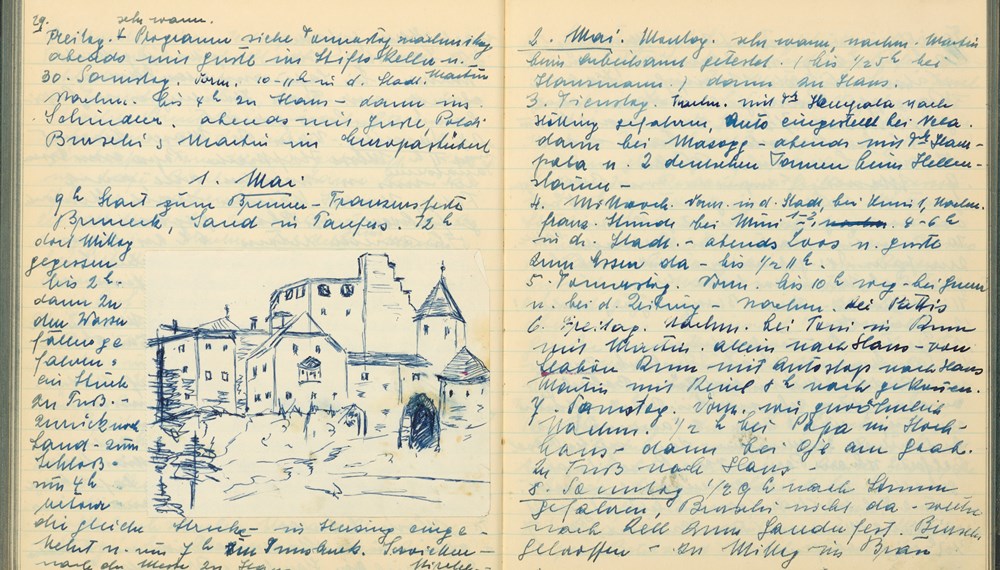 29. sehr warm.
Freitag. Programm siehe Donnerstag nachmittag
abends mit Guste im Stiftskeller u. Martin
30. Samstag. Vorm. 10-11h in d. Stadt.
Nachm. bis 4h zu Haus - dann ins
Schindler. abends mit Guste, Poldi
Martin im Europastüberl
1. Mai
9h Start zum Brenner - Franzensfeste
Bruneck, Sand in Taufers. 12h
dort Mittag
gegessen
bis 2h.
dann zu
den Wasser
fällen ge
fahren,
ein Stück
zu Fuß. -
zurück nach
Sand - zum
Schloß -
um 4h
retour
die gleiche Strecke - in Sterzing einge-
kehrt u. um 7h Innsbruck.
zu Haus
2. Mai. Montag. sehr warm, nachm. Martin
beim Arbeitsamt getestet. (bis 1/2 5h bei
Hausmann.) dann zu Haus.
3. Dienstag. Nachm. mit nach
gefahren, Auto eingestellt bei
dann bei - abends mit
u. 2 deutschen Damen beim Hellen-
stainer -
4. Mittwoch. Vorm. in d. Stadt, bei Nachm.
franz. Stunde bei Mimi 1-3, 4-6h
in d. Stadt. - abends Loos u. Guste
zum Essen da - bis 1/2 11h.
5. Donnerstag. Vorm. bis 10h weg - bei
u. bei d. Zeitung - Nachm. bei
6. Freitag. Nachm. bei Toni in Rum
mit Martin. allein nach Haus - von
Rum mit Autostop nach Haus
Martin mit 8h nach gekommen.
7. Samstag. Vorm. wie gewöhnlich
Nachm. 1/2 h bei Papa im Hoch-
haus - dann bei am
zu Fuß nach Haus
8. Sonntag 1/2 9h nach
gefahren, nicht da - weiter
nach Zell zum Gauderfest.
getroffen - zu Mittag im Bräu